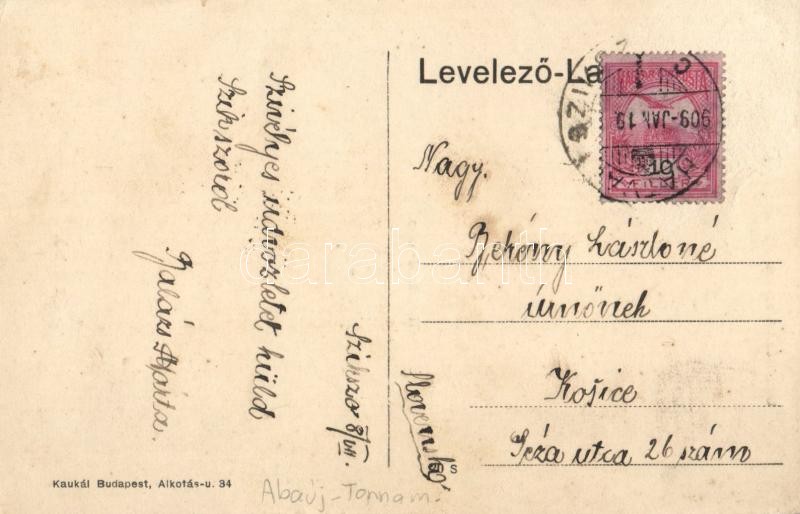 Levelező-La
909-JAN.19
10
Nagy.
Bekény Lászlóné
úrnőnek
Košice
Géza utca 26 szám
Slovensko
Szívélyes üdvözletet küld
Szikszóról
Balázs Márta.
Szikszó 8/VII.
Kaukál Budapest, Alkotás-u. 34
Abaúj-Tornam.
darabanth